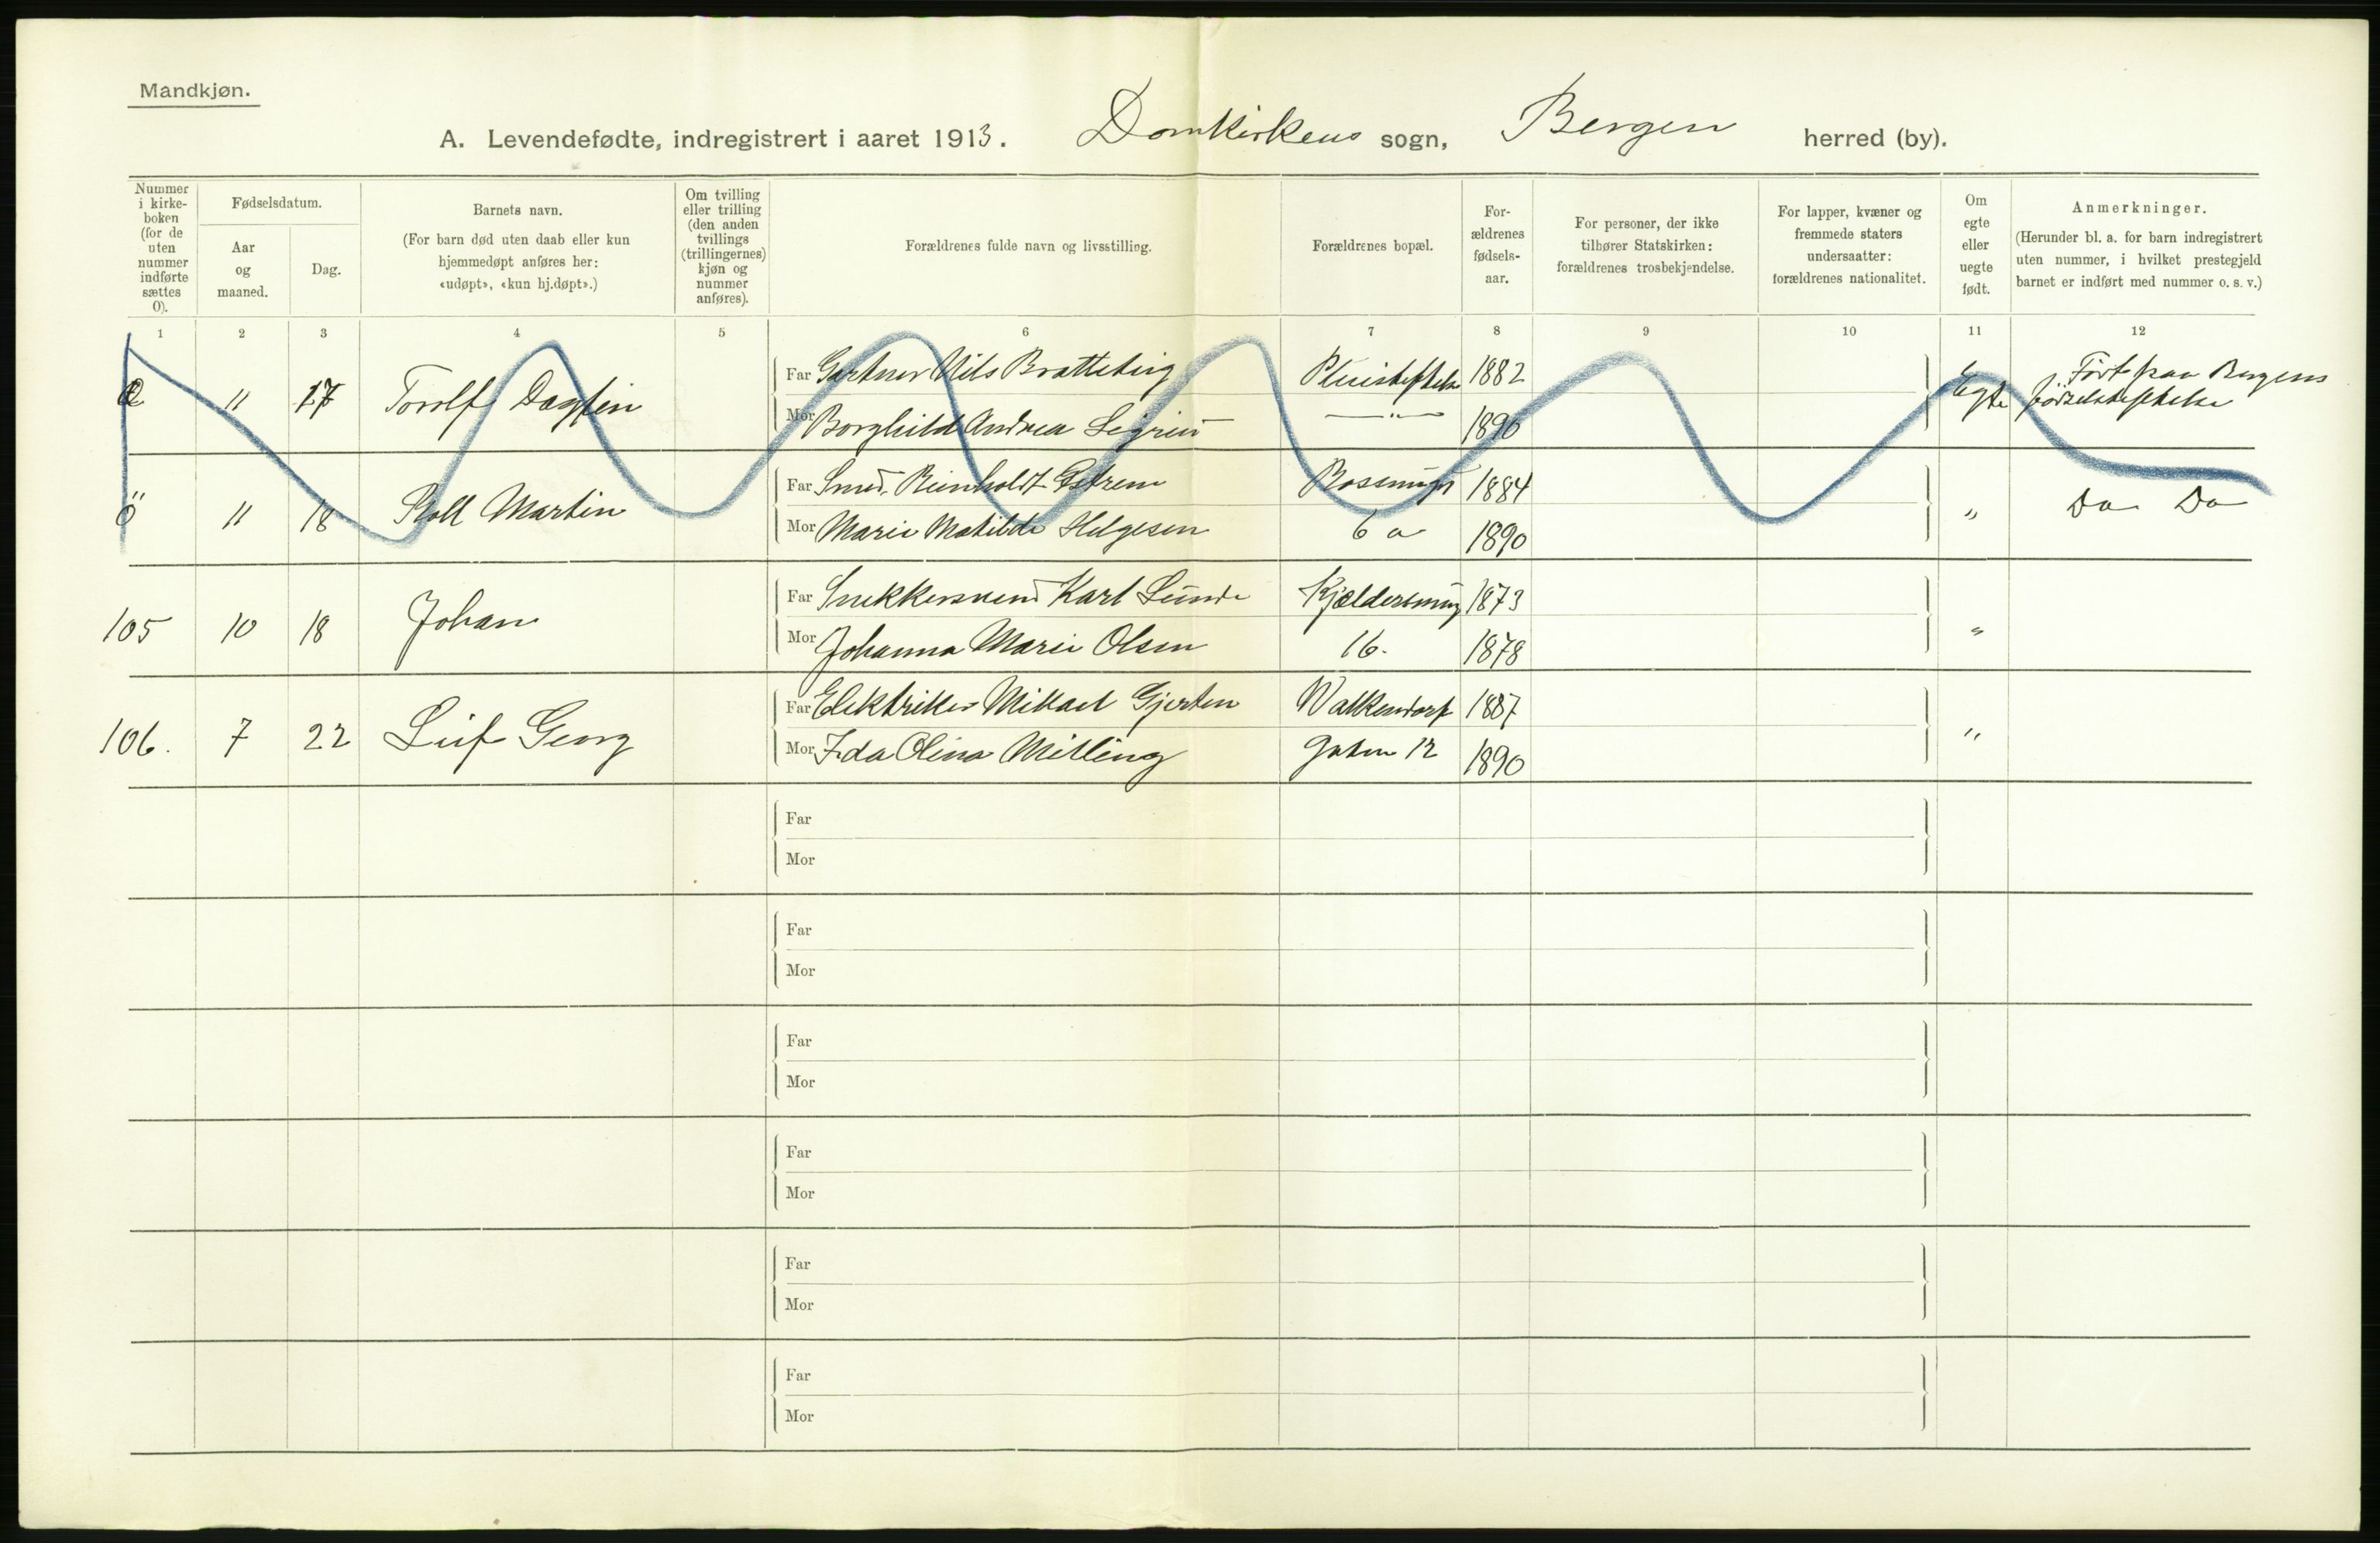 Mandkjøn.
A. Levendefødte, indregistrert i aaret 1913. Domkirkens sogn, Bergen herred (by).
Nummer i kirke-boken (for de uten nummer indførte sættes 0).
Fødselsdatum.
Aar og maaned.
Dag.
Barnets navn.
(For barn død uten daab eller kun hjemmedøpt anføres her: «udøpt», «kun hj.døpt».)
Om tvilling eller trilling (den anden tvillings (trillingernes) kjøn og nummer anføres).
Forældrenes fulde navn og livsstilling.
Forældrenes bopæl.
For-ældrenes fødsels-aar.
For personer, der ikke tilhører Statskirken: forældrenes trosbekjendelse.
For lapper, kvæner og fremmede staters undersaatter: forældrenes nationalitet.
Om egte eller uegte født.
Anmerkninger.
(Herunder bl. a. for barn indregistrert uten nummer, i hvilket prestegjeld barnet er indført med nummer o. s. v.)
1 2 3 4 5 6 7 8 9 10 11 12
11 17 Torolf Dagfin
Far Gartner Nils Bratteteig 1882
Mor Borghild Andrea —"— 1890
Egte Ført fra Bergens fødselsstiftelse
ö 11 18 Martin
Far Smed Reinholdt 1884
Mor Marie Matilde Helgesen 6 a 1890
" Do Do
105 10 18 Johan
Far Snekkersvend Karl Lunde Kjældersmug 1873
Mor Johanna Marie Olsen 16. 1878
"
106. 7 22 Leif Georg
Far Elektriker Mikael Gjertsen Walkendorf 1887
Mor Ida Olina Milling gaten 12 1890
"
Far
Mor
Far
Mor
Far
Mor
Far
Mor
Far
Mor
Far
Mor